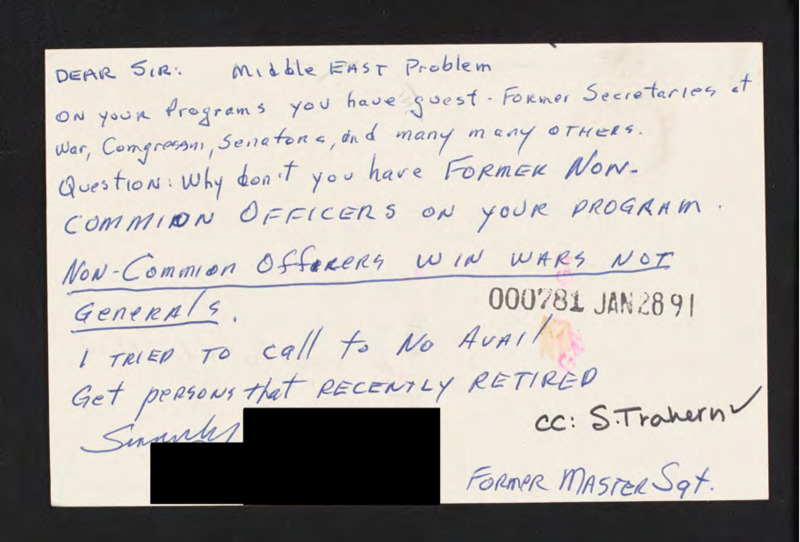 DEAR SIR: Middle EAST Problem
ON YOUR Programs you have guest. Former Secretaries of
War, Comgressm, Senators, and many many OTHERS.
Question: Why don't you have FORMER NON-
COMMION OFFICERS ON YOUR PROGRAM.
NON-Commion Officers WIN WARS NOT
Generals.
000781 JAN 28 91
I TRIED TO call to No AVAIl
Get persons that RECENTLY RETIRED
cc: S. Trahern ✓
Sincerely
FORMER MASTER Sgt.